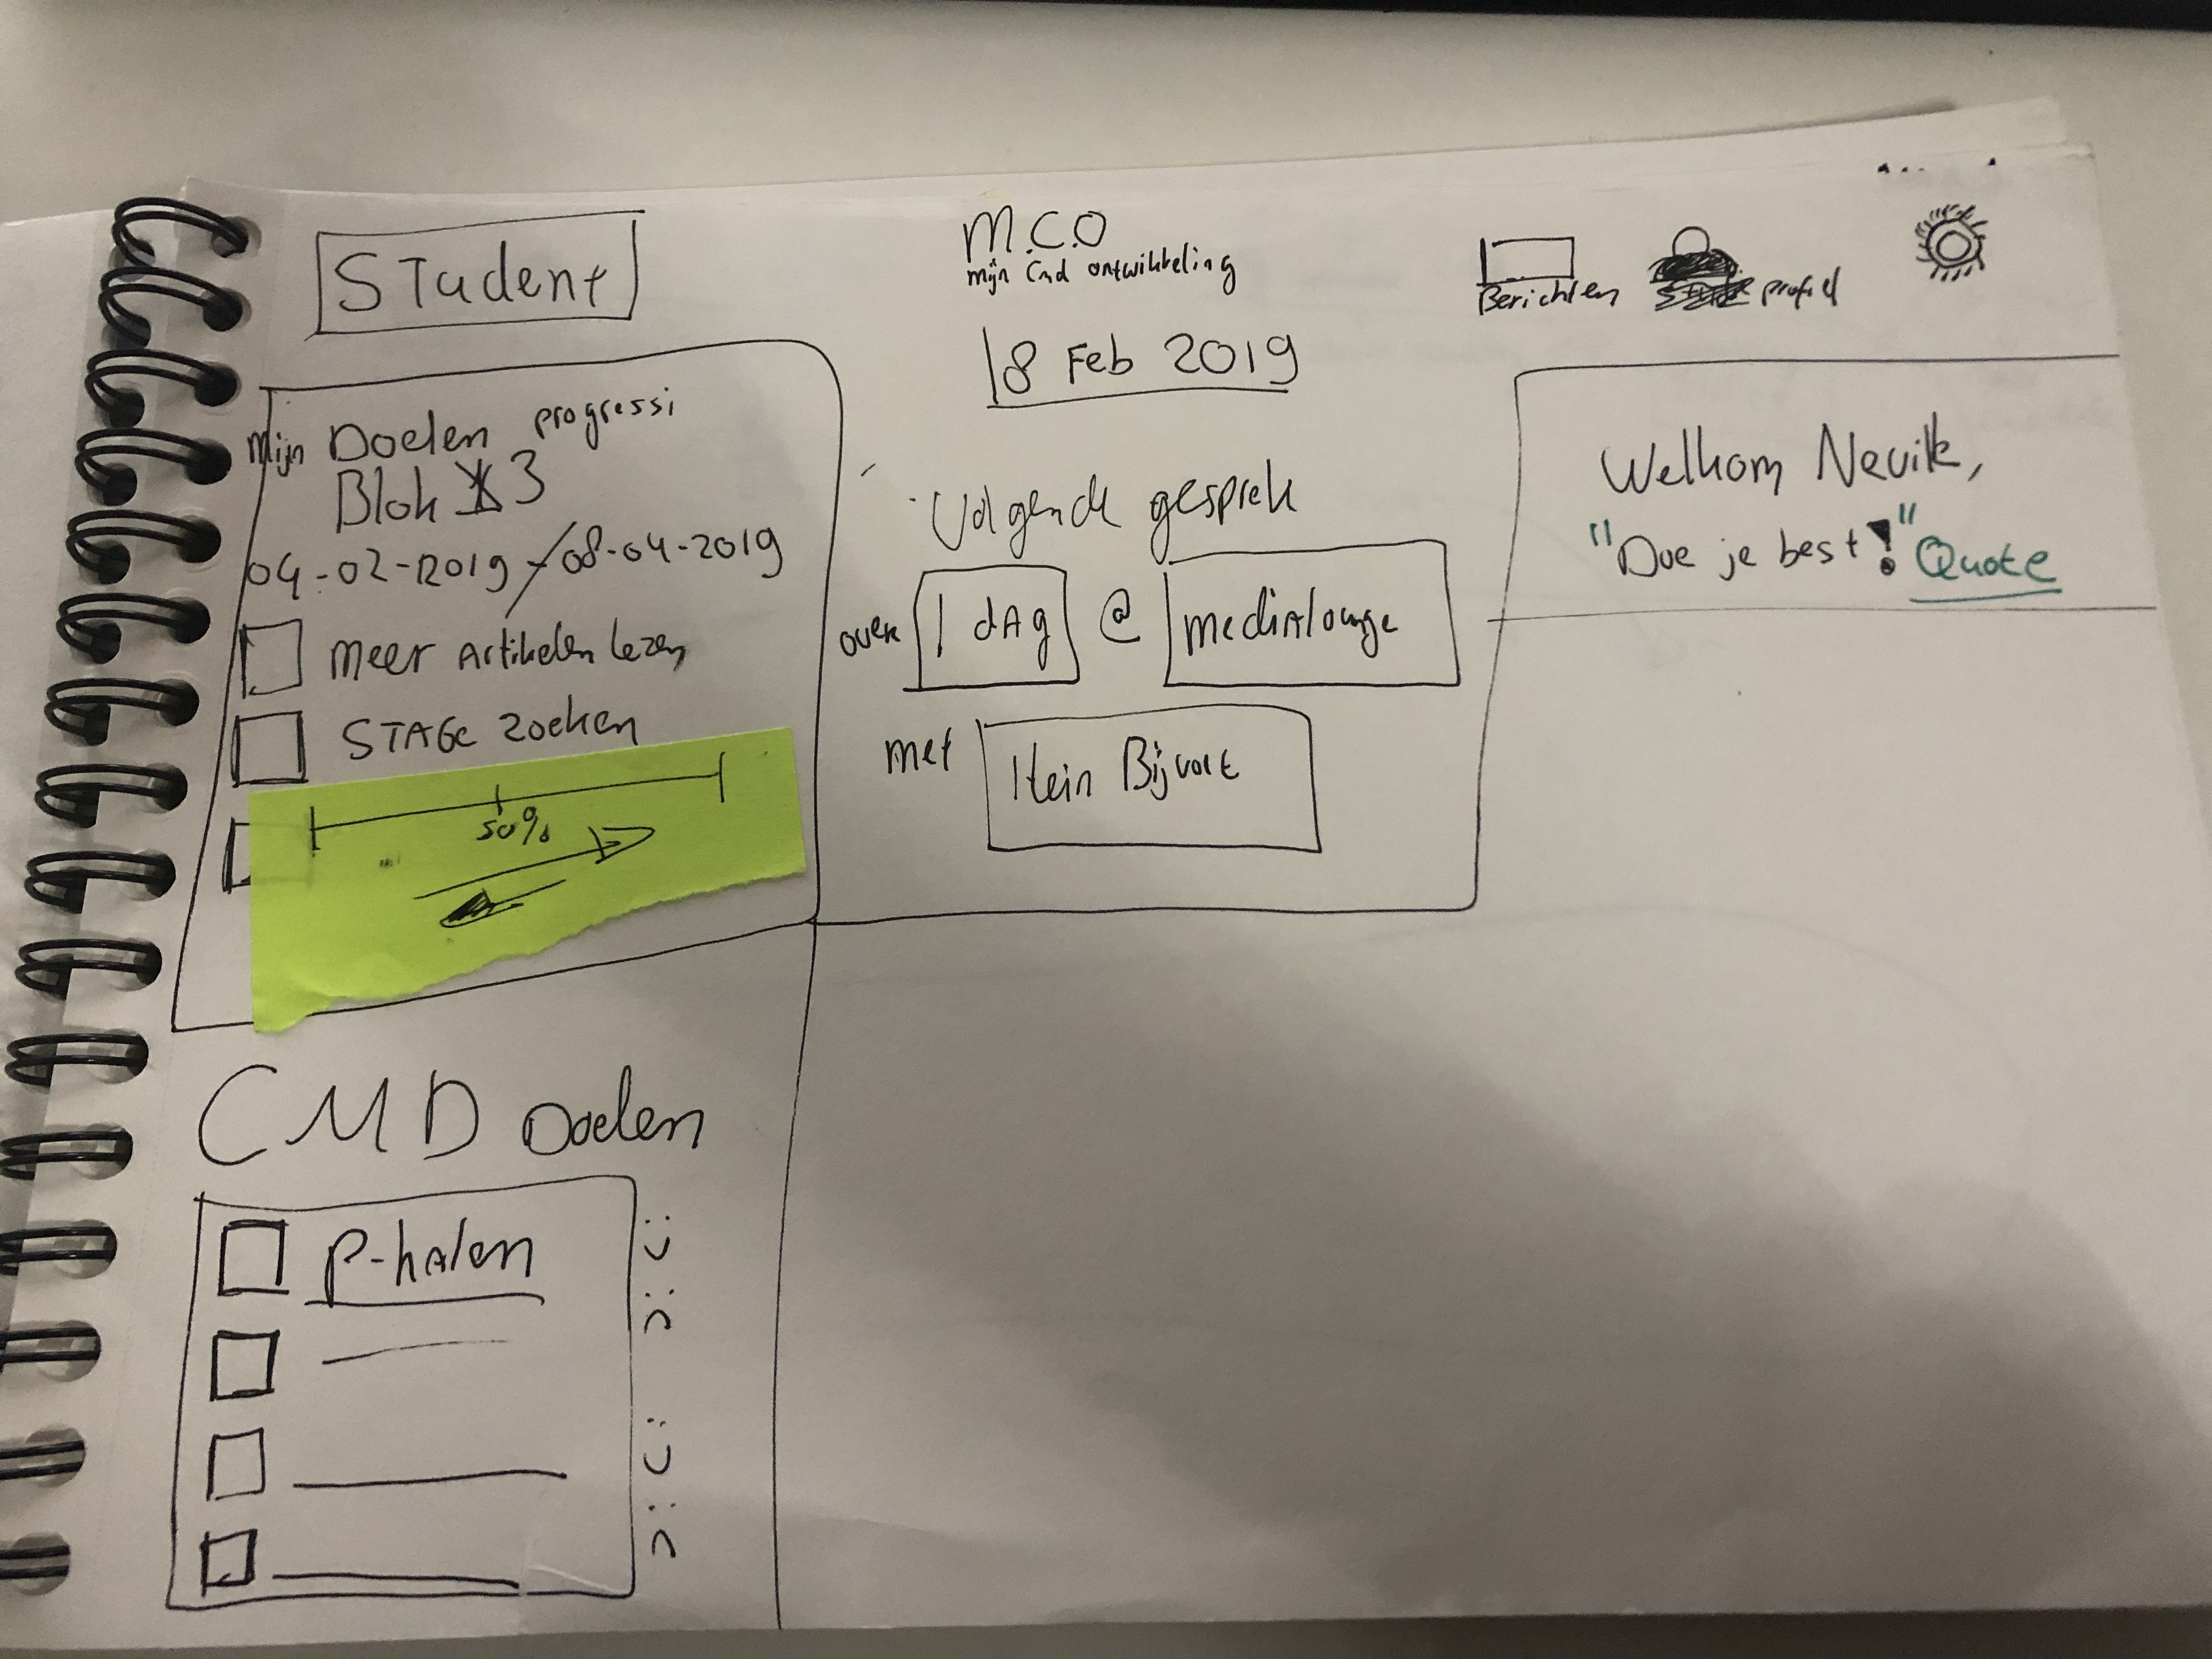 STudent
M.C.O
mijn Cmd ontwikkeling
18 Feb 2019
Berichten
profiel
mijn Doelen progressi
Blok 3
04-02-2019 - 08-04-2019
Meer Artikelen lezen
STAGE zoeken
50%
Volgende gesprek
over 1 dAg @ mediAlounge
met Hein Bijvoet
Welkom Neville,
"Doe je best!" Quote
CMD Doelen
P-halen